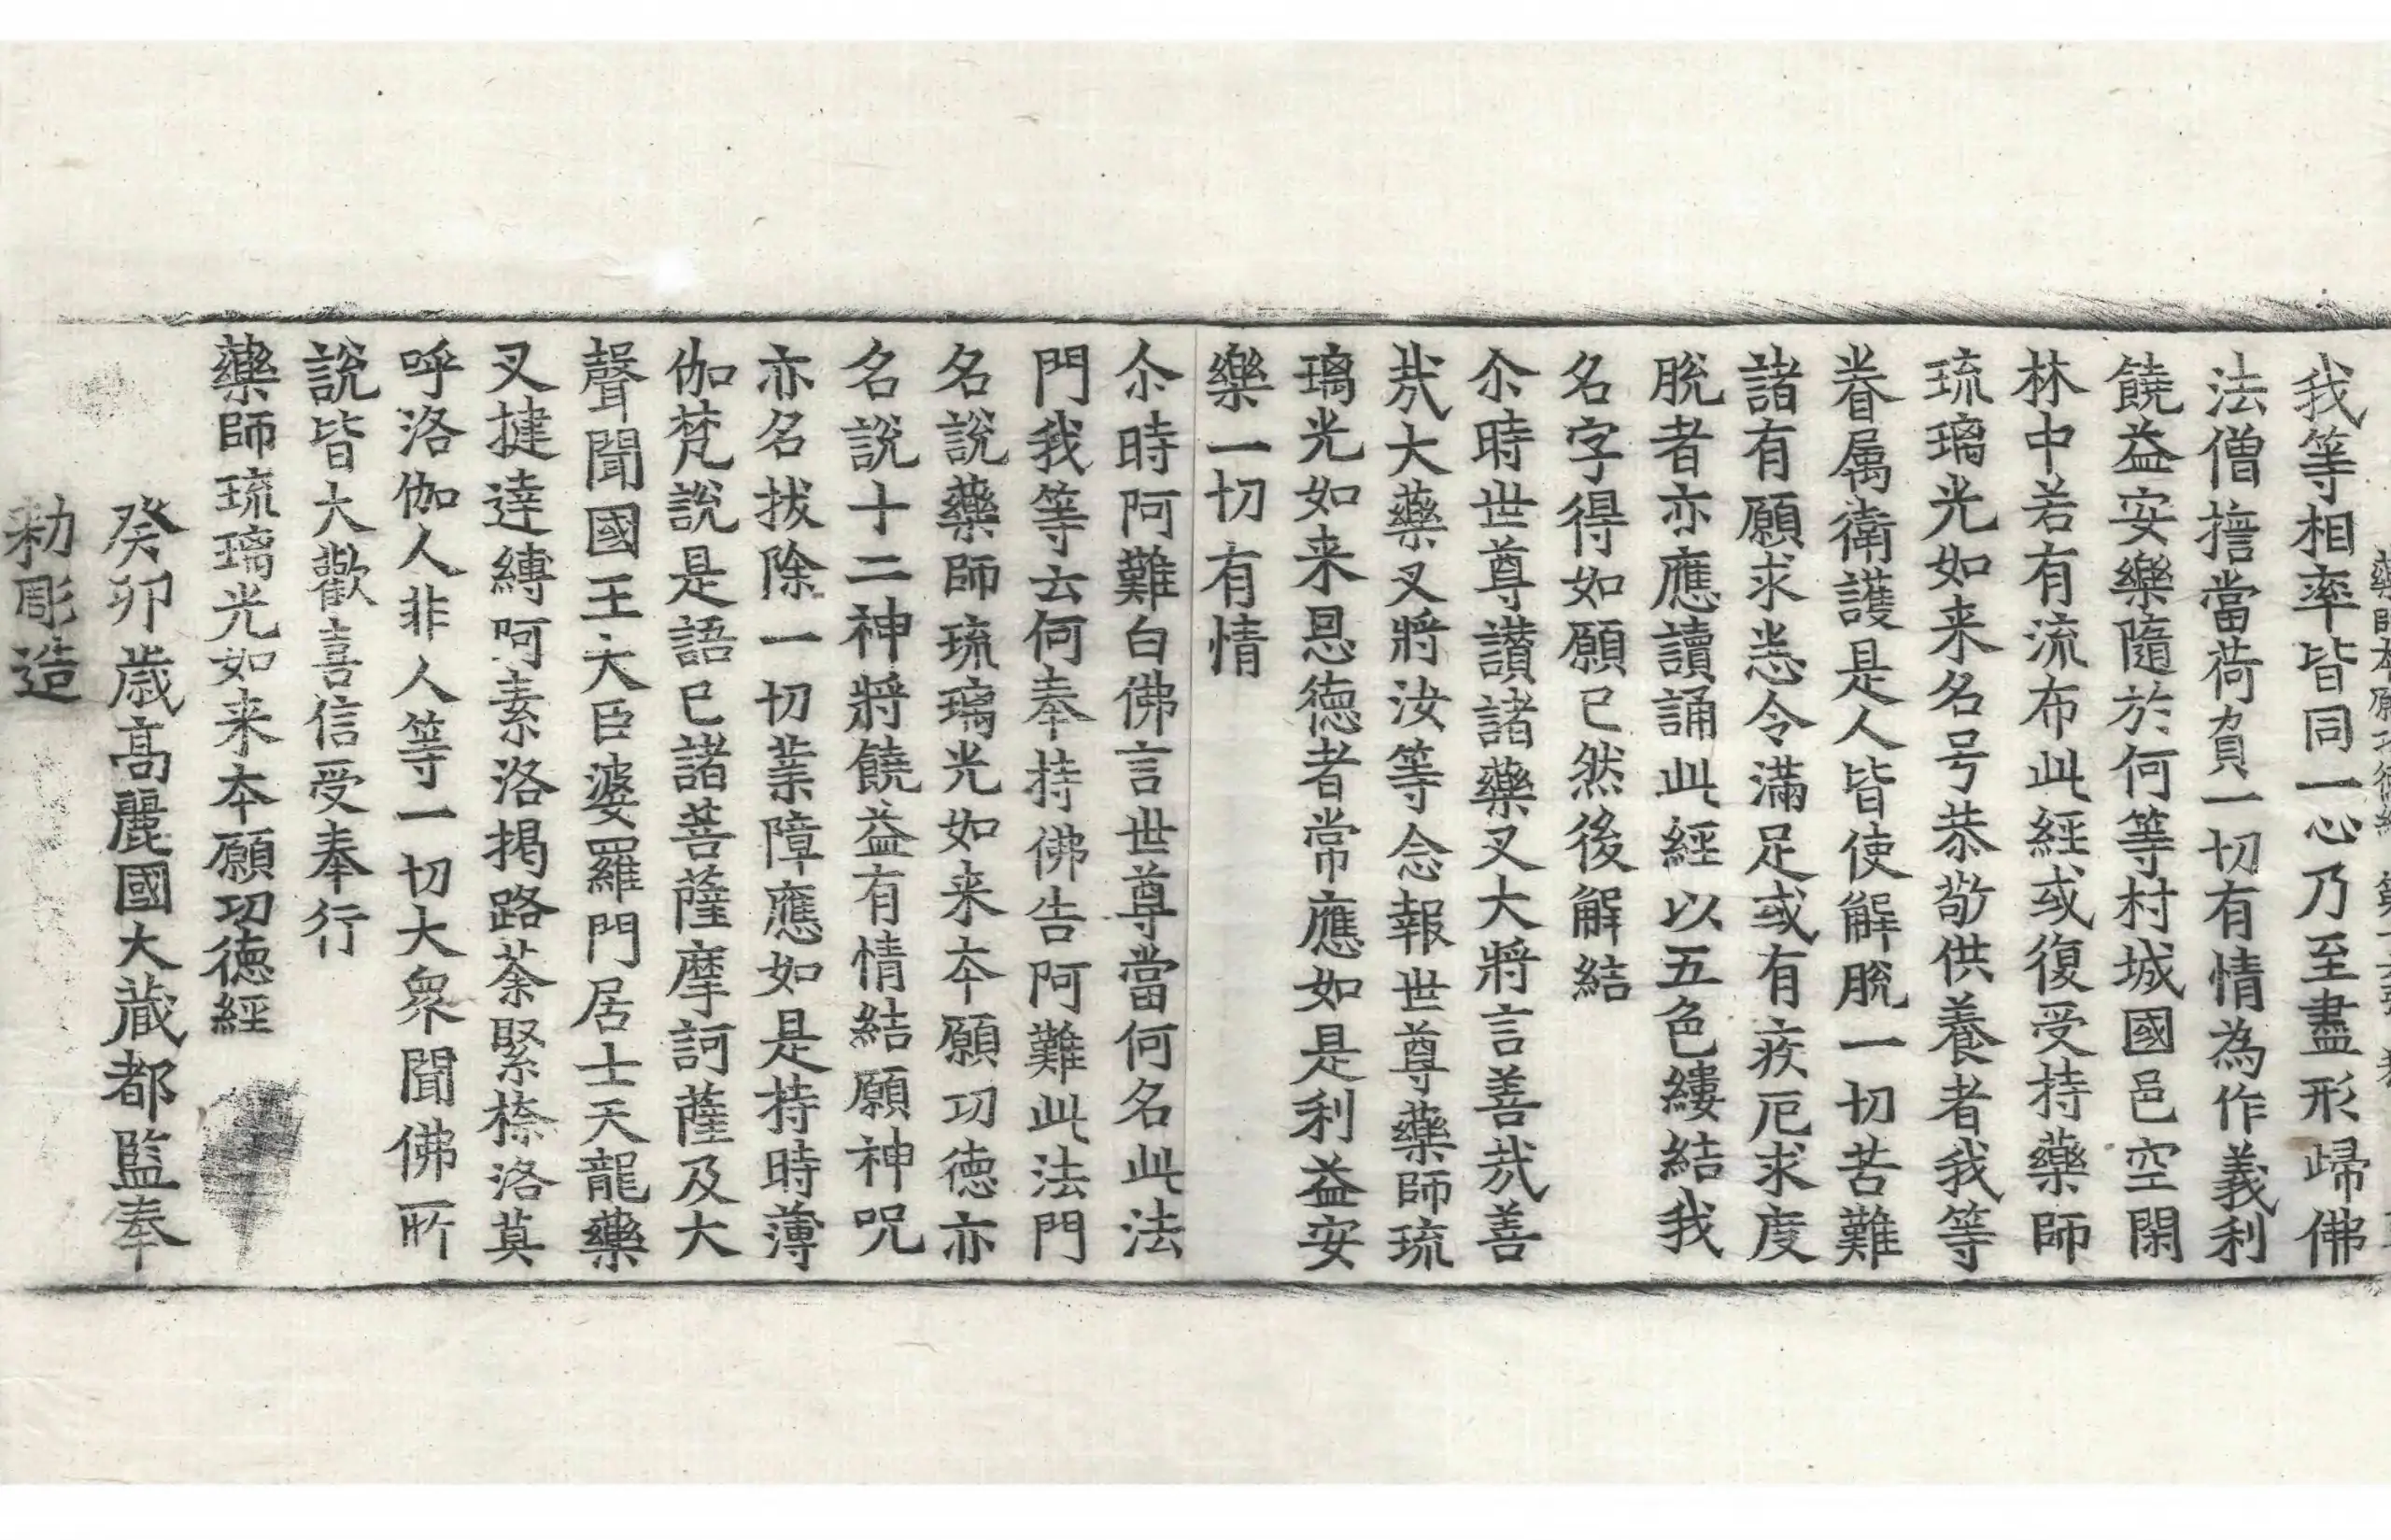 我等相率皆同一心乃至盡形歸佛
法僧擔當荷負一切有情為作義利
饒益安樂隨於何等村城國邑空閑
林中若有流布此經或復受持藥師
琉璃光如来名号恭敬供養者我等
眷属衛護是人皆使解脫一切苦難
諸有願求悉令滿足或有疾厄求度
脫者亦應讀誦此經以五色縷結我
名字得如願已然後解結
尒時世尊讃諸藥叉大將言善㢤善
㢤大藥叉將汝等念報世尊藥師琉
璃光如来恩德者常應如是利益安
樂一切有情
尒時阿難白佛言世尊當何名此法
門我等云何奉持佛告阿難此法門
名說藥師琉璃光如来本願功德亦
名說十二神將饒益有情結願神呪
亦名拔除一切業障應如是持時薄
伽梵說是語已諸菩薩摩訶薩及大
聲聞國王大臣婆羅門居士天龍藥
叉揵達縛阿素洛揭路荼緊捺洛莫
呼洛伽人非人等一切大衆聞佛所
說皆大歡喜信受奉行
藥師琉璃光如来本願功德經
癸卯歲高麗國大藏都監奉
勑彫造